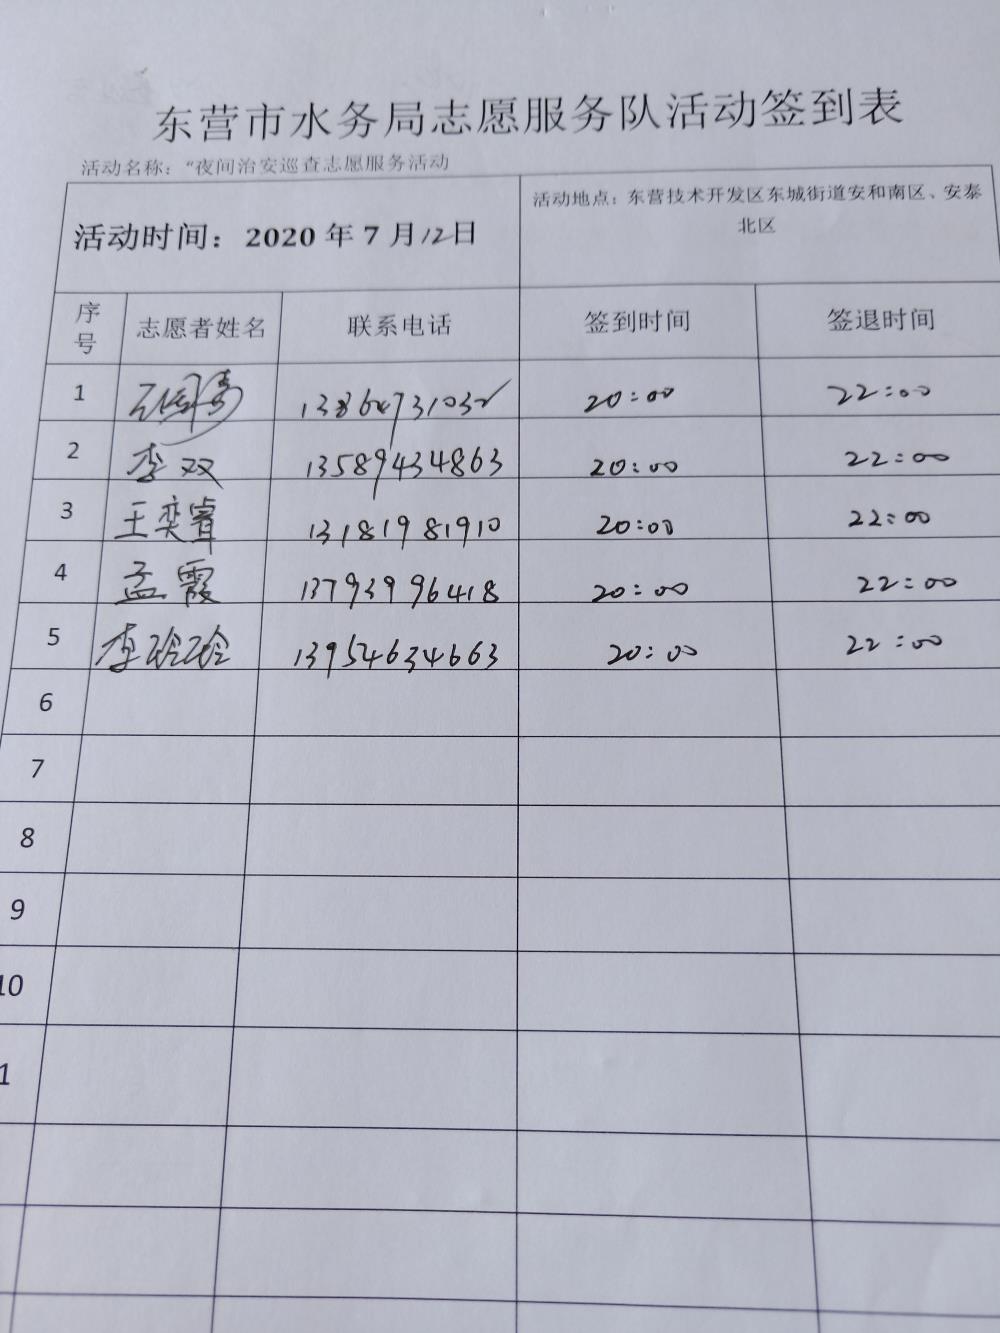 东营市水务局志愿服务队活动签到表
活动名称：“夜间治安巡查志愿服务活动
活动时间：2020 年 7 月12日 活动地点：东营技术开发区东城街道安和南区、安泰
北区
序号 志愿者姓名 联系电话 签到时间 签退时间
1 20:00 22:00
2 李双 13589434863 20:00 22:00
3 王奕睿 13181981910 20:00 22:00
4 孟霞 13793996418 20:00 22:00
5 李玲玲 13954634663 20:00 22:00
6
7
8
9
10
1